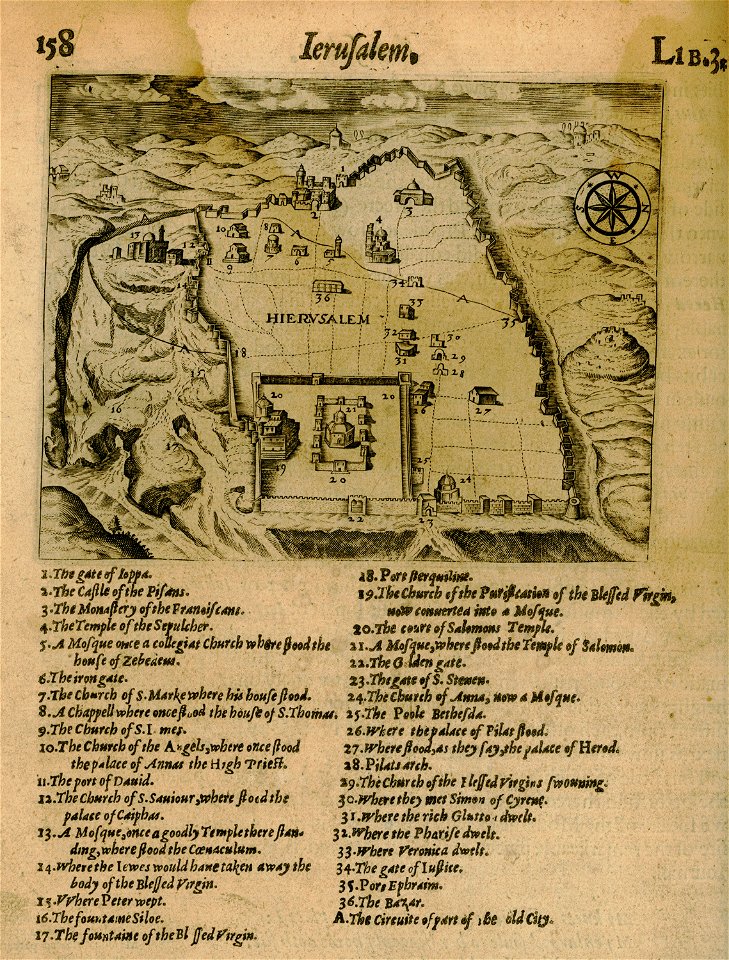 158 Ierusalem. LIB.3.
S W N E
HIERVSALEM
1.The gate of Ioppa.
2.The Castle of the Pisans.
3.The Monastery of the Franciscans.
4.The Temple of the Sepulcher.
5.A Mosque once a collegiat Church where stood the
house of Zebedeus.
6.The iron gate.
7.The Church of S.Marke where his house stood.
8.A Chappell where once stood the house of S.Thomas.
9.The Church of S.I mes.
10.The Church of the Angels,where once stood
the palace of Annas the High Priest.
11.The port of Dauid.
12.The Church of S.Sauiour,where stood the
palace of Caiphas.
13.A Mosque,once a goodly Temple there stan-
ding,where stood the Cœnaculum.
14.Where the Iewes would haue taken away the
body of the Blessed Virgin.
15.VVhere Peter wept.
16.The fountaine Siloe.
17.The fountaine of the Bl ssed Virgin.
18.Port sterquiline.
19.The Church of the Purification of the Blessed Virgin,
now conuerted into a Mosque.
20.The court of Salomons Temple.
21.A Mosque,where stood the Temple of Salomon.
22.The Golden gate.
23.The gate of S. Steuen.
24.The Church of Anna,now a Mosque.
25.The Poole Bethesda.
26.Where the palace of Pilat stood.
27.Where stood,as they say,the palace of Herod.
28.Pilats arch.
29.The Church of the Blessed Virgins swouning.
30.Where they met Simon of Cyrene.
31.Where the rich Glutton dwelt.
32.Where the Pharise dwelt.
33.Where Veronica dwelt.
34.The gate of Iustice.
35.Port Ephraim.
36.The Bazar.
A.The Circuite of part of the old City.